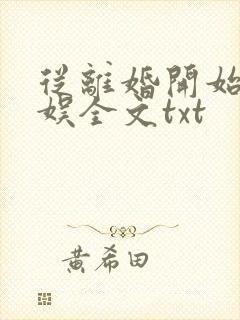 從離婚開始
娛全文txt
黄希田